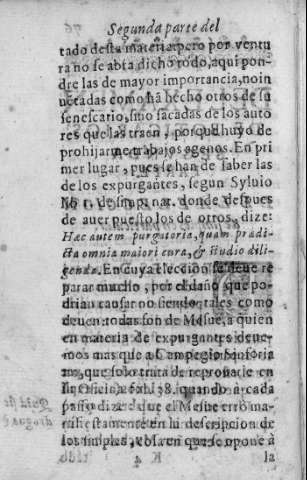 Segunda parte del
tado desta materia: pero por ventu
ra no se abrà dicho todo, aqui pon
dre las de mayor importancia, no in
uetadas como hã hecho otros de su
senescario, sino sacadas de los auto
res que las traen, porque huyo de
prohijarme trabajos agenos. En pri
mer lugar, pues se han de saber las
de los expurgantes, segun Syluio
donde despues
de auer puesto los de otros, dize:
Hæc autem purgatoria, quam prædi-
cta omnia maiori cura, & studio dili-
genda. En cuya eleccion se deue re
parar mucho, por el daño que po-
drian causar no siendo tales como
deuen: todas son de Mesue, a quien
en materia de expurgantes deue-
mos mas que a Campegio
que solo trata de reprouarle en
fol. 38. quando a cada
passo dize de que el Mesue errò ma-
nifiestamente en la descripcion de
los simples, cosa en que se opone à
K 4 la